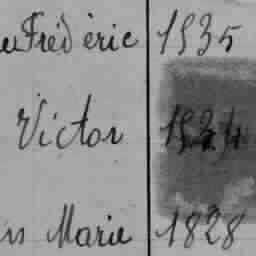 Frédéric 1835
Victor
Marie 1828